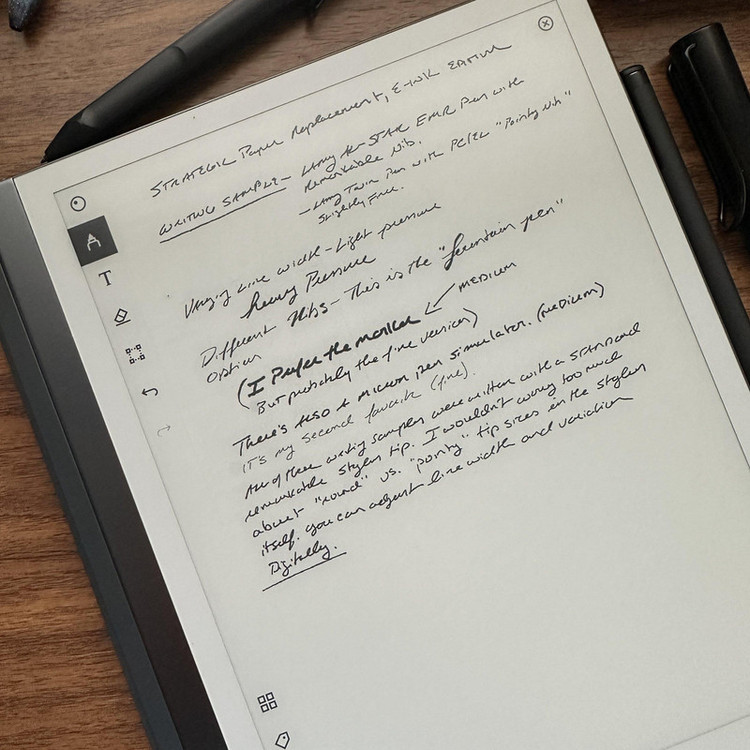 Strategic Paper Replacement, E-ink Edition
Writing Sample - Using Al-Star EMR Pen with
Remarkable Nib.
- Using Twin Pen with "Pointy Nib"
Slightly Finer.
Varying Line width - Light pressure
heavy Pressure
Different Nibs - This is the "fountain pen"
option
(I Prefer the marker
MEDIUM
But probably the fine version)
There's also a micron pen simulator. (medium)
It's my second favorite (fine).
All of these writing samples were written with a standard
remarkable stylus tip. I wouldn't worry too much
about "round" vs. "pointy" tip sizes in the stylus
itself. You can adjust line width and variation
Digitally.
T